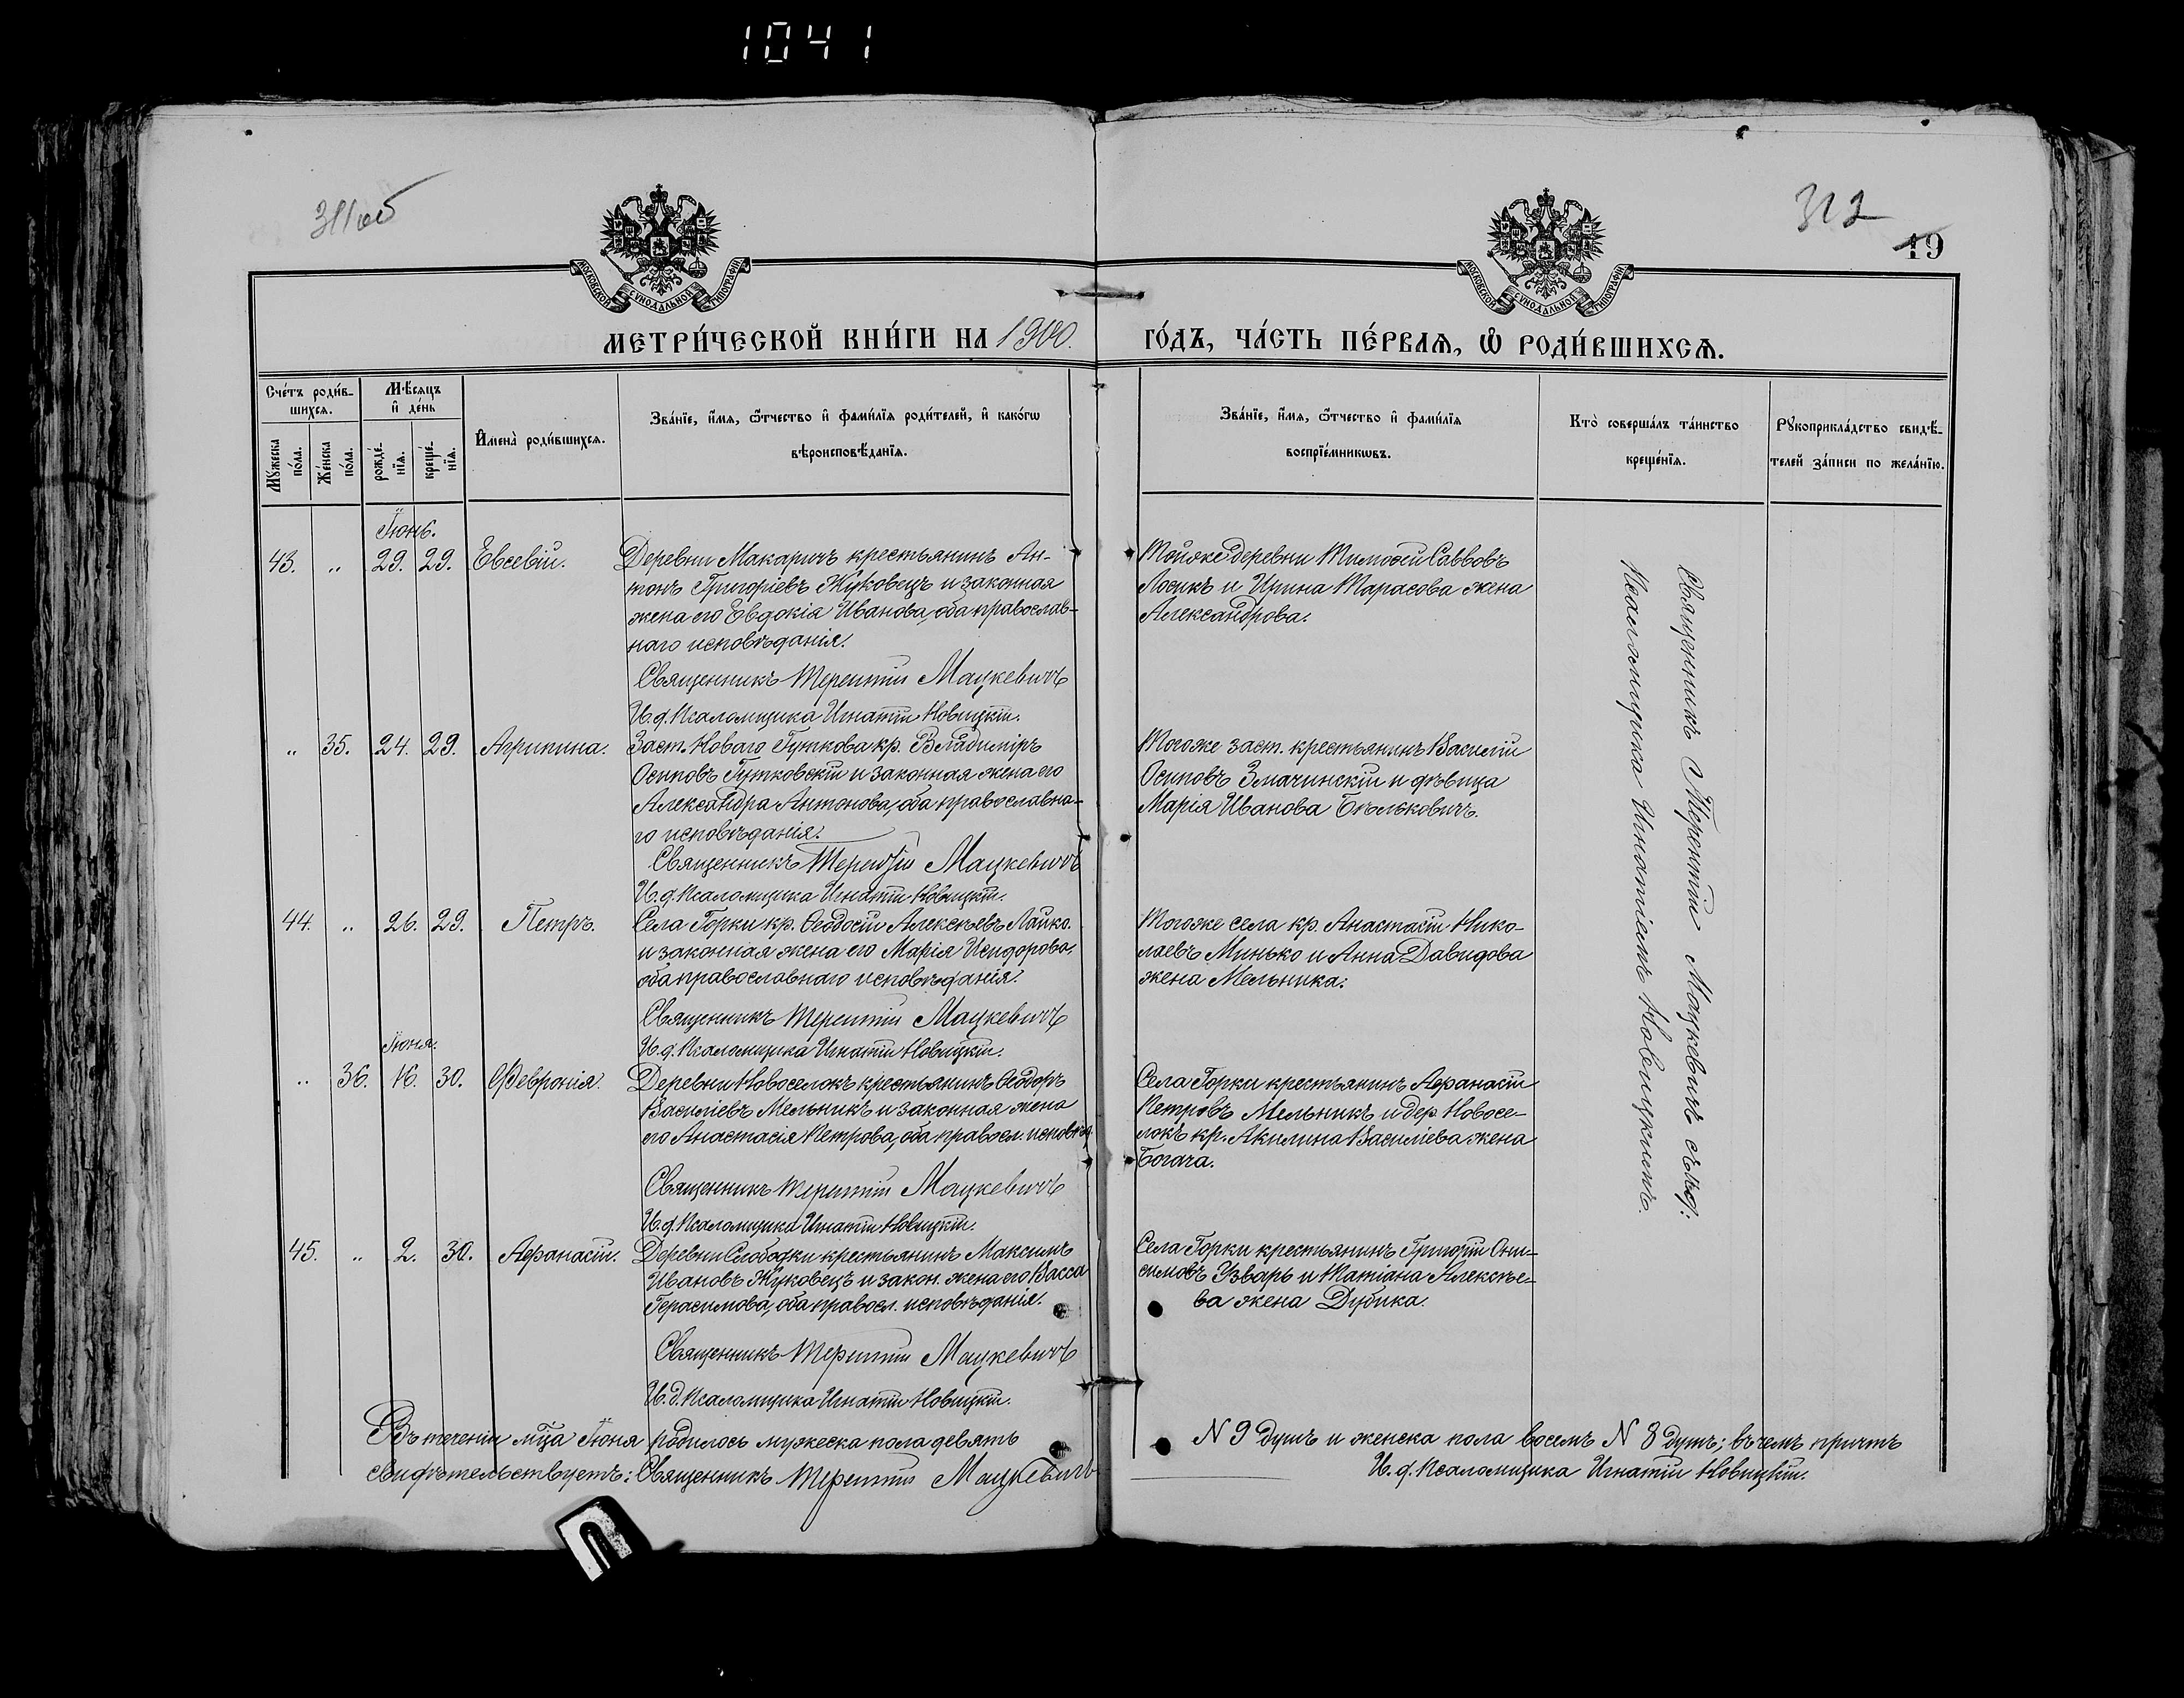 1041
311об
312
19
МОСКОВСКОЙ СУНОДАЛЬНОЙ ТИПОГРАФІИ
МОСКОВСКОЙ СУНОДАЛЬНОЙ ТИПОГРАФІИ
МЕТРИ́ЧЕСКОЙ КНИ́ГИ НА 1900.
ГО́ДЪ, ЧА́СТЬ ПЕ́РВАѦ, Ѿ РОДИ́ВШИХСѦ.
Сче́тъ роди́в-
шихсѧ.
Мꙋ́жеска
по́ла.
Же́нска
по́ла.
Мѣ́сѧцъ
и҆ де́нь
рожде́-
нїѧ.
креще́-
нїѧ.
И҆мена̀ роди́вшихсѧ.
Зва́нїе, и҆́мѧ, ѻ҆́тчество и҆ фами́лїѧ роди́телей, и҆ како́гѡ
вѣроисповѣ́данїѧ.
Зва́нїе, и҆́мѧ, ѻ҆́тчество и҆ фами́лїѧ
воспрїе́мникѡвъ.
Кто̀ соверша́лъ та́инство
креще́нїѧ.
Рꙋкоприкла́дство свидѣ́-
телей за́писи по жела́нїю.
Іюнь.
43. „ 29. 29. Евсевій.
Деревни Макаричъ крестьянинъ Ан-
тонъ Григоріевъ Жуковецъ и законная
жена его Евдокія Иванова, оба православ-
наго исповѣданія.
Священникъ Терентій Мацкевичъ
И. д. Псаломщика Игнатій Новицкій.
Тойже деревни Тимоѳей Саввовъ
Лосикъ и Ирина Тарасова жена
Александрова.
„ 35. 24. 29. Агрипина.
Заст. Новаго Гуткова кр. Владиміръ
Осиповъ Гутковскій и законная жена его
Александра Антонова, оба православна-
го исповѣданія.
Священникъ Терентій Мацкевичъ
И. д. Псаломщика Игнатій Новицкій.
Тогоже заст. крестьянинъ Василій
Осиповъ Змачинскій и дѣвица
Марія Иванова Бѣльковичъ.
44. „ 26. 29. Петръ.
Села Горки кр. Ѳеодосій Алексѣевъ Лайко
и законная жена его Марія Исидорова,
оба православнаго исповѣданія.
Священникъ Терентій Мацкевичъ
И. д. Псаломщика Игнатій Новицкій.
Тогоже села кр. Анастасій Нико-
лаевъ Минько и Анна Давидова
жена Мельника.
Іюня.
„ 36. 16. 30. Февронія.
Деревни Новоселокъ крестьянинъ Ѳеодоръ
Василіевъ Мельникъ и законная жена
его Анастасія Петрова, оба правосл. исповѣд.
Священникъ Терентій Мацкевичъ
И. д. Псаломщика Игнатій Новицкій.
Села Горки крестьянинъ Аѳанасій
Петровъ Мельникъ и дер. Новосе-
локъ кр. Акилина Василіева жена
Богача.
45. „ 2. 30. Аѳанасій.
Деревни Слободки крестьянинъ Максимъ
Ивановъ Жуковецъ и закон. жена его Васса
Герасимова, оба правосл. исповѣданія.
Священникъ Терентій Мацкевичъ
И. д. Псаломщика Игнатій Новицкій.
Села Горки крестьянинъ Григорій Они-
симовъ Узваръ и Татіана Алексѣе-
ва жена Дубика.
Священникъ Терентій Мацкевичъ съ и.д.
Псаломщика Игнатіемъ Новицкимъ.
Въ теченіи м-ца Іюня родилось мужеска пола девять
N 9 душъ и женска пола восемь N 8 душъ; въ чемъ причтъ
свидѣтельствуетъ: Священникъ Терентій Мацкевичъ
И. д. Псаломщика Игнатій Новицкій.